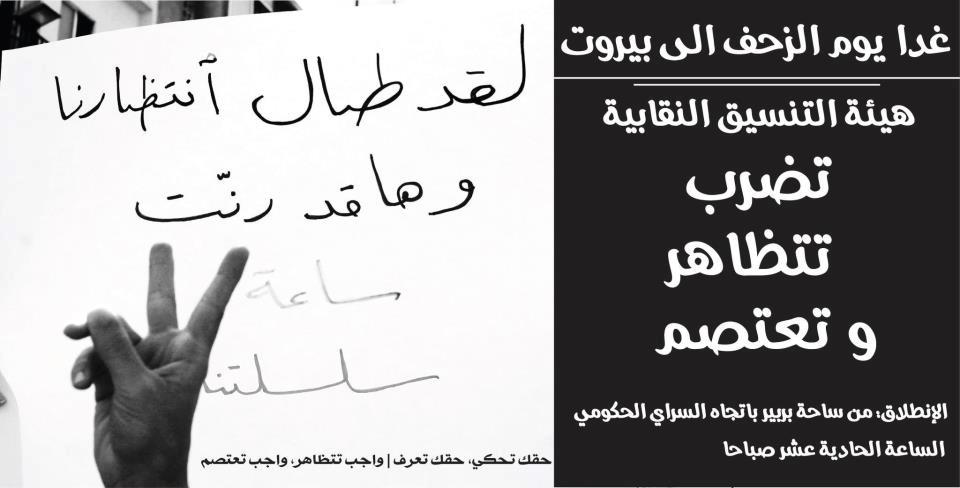 غدا يوم الزحف الى بيروت
هيئة التنسيق النقابية
تضرب
تتظاهر
و تعتصم
الإنطلاق: من ساحة بربير باتجاه السراي الحكومي
الساعة الحادية عشر صباحا
لقد طال أنتظارنا
وها قد رنّت
ساعة
سلسلتنا
حقك تحكي، حقك تعرف | واجب تتظاهر، واجب تعتصم